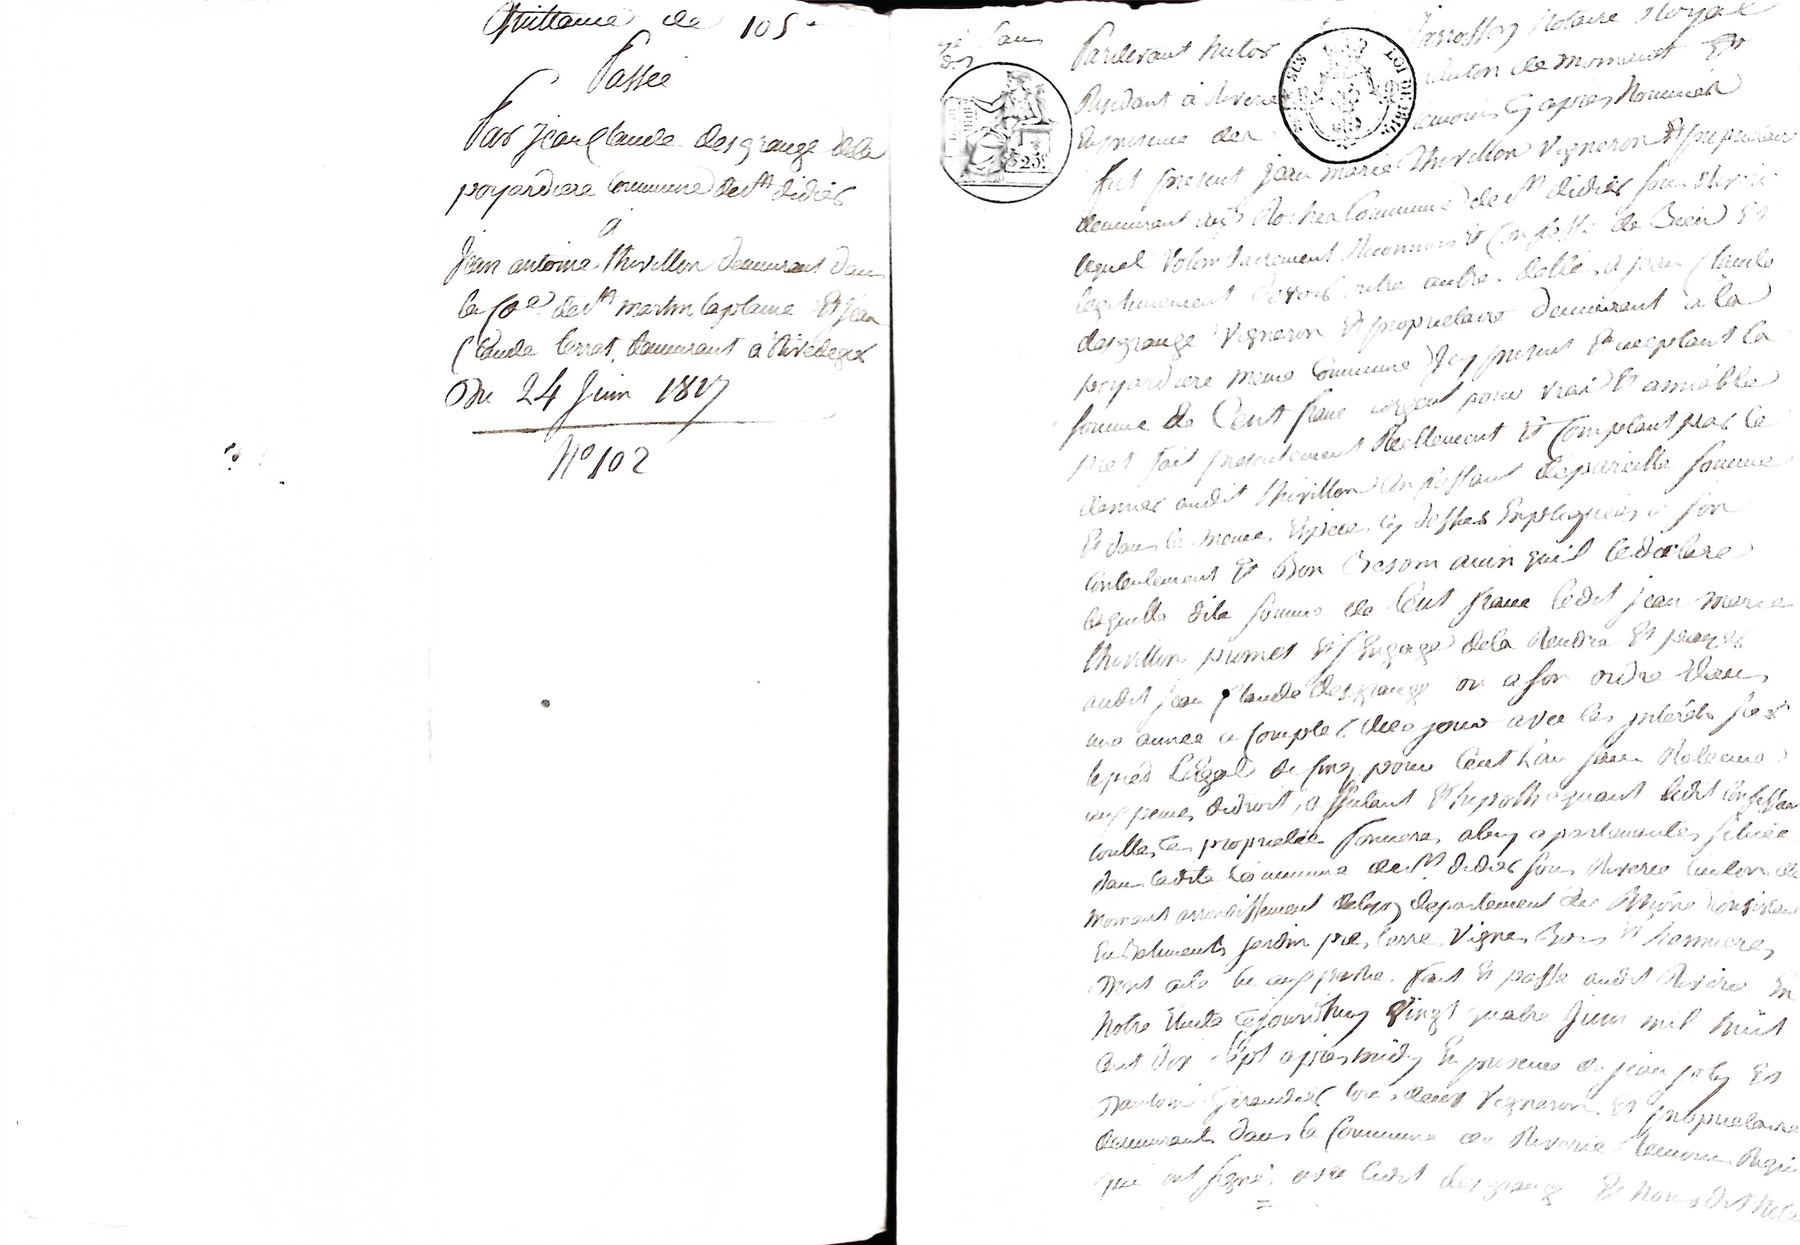 Quittance de 105 f
Passée
Par jean Claude desgrange dela
poyardiere Commune de st didier
a
Jean antoine thivillon demeurant dans
la Coe. de st martin laplaine Et jean
Claude terrat, demeurant a Rivedegier
Du 24 Juin 1817
No 102
Pardevant Notaire Royal
Residant à Riverie Canton de mornant Et
En presence des temoins Cy apres Nommés
fut present jean marie thivillon Vigneron Et propriétaire
demeurant aux Roches Commune de st didier sous Riverie
lequel Volontairement Reconnois Et Confesse de Bien Et
legitimement devoir outre autre dette, a jean Claude
desgrange Vigneron Et propriétaire demeurant a la
poyardiere meme Commune Icy present Et acceptant la
somme de Cent franc argent pour vrai Et amiable
pret fait presentement Reellement Et Comptant par le
dernier audit thivillon Confessant de pareille somme
Et dans la meme Espèce Cy dessus Expliquées a son
contentement Et Bon Besoin ainsi quil le declare
laquelle dite somme de Cent franc ledit jean marie
thivillon promet Et sEngage dela Rendre Et payer
audit jean Claude desgrange ou a son ordre dans
une année a Compter de ce jour avec les intérêts sur
le pied LEgal de cinq pour Cent l'an sans Retenue
aux peines de droit, affectant Et hypothequant ledit Confessant
touttes les propriétés foncieres a luy apartenantes, situées
dans ladite Commune de st didier sous Riverie Canton de
mornant arrondissement delyon departement du Rhône Consistant
En Batiments, jardin, pres, terre, Vignes, Bois Et
Dont acte fait Et passé audit Riverie En
Notre Etude Cejourdhuy Vingt quatre Juin mil huit
Cent dix sept apres midy En presence de jean joly Et
d'antoine Giraudier tous deux Vignerons Et propriétaire
demeurants dans la Commune de Riverie temoins Requis
qui ont signé, avec ledit desgrange Et Nous dit Notaire